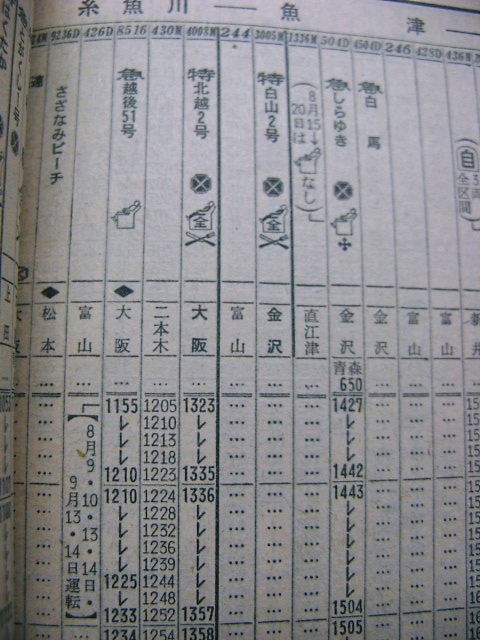 糸魚川――魚津――
9236D 426D 8516 430M 4008M 244 3005M 1336M 504D 4504D 246 428D 436M
さざなみビーチ
急越後51号
特北越2号
特白山2号
8月15↓20日はなし
急しらゆき
急白馬
自 全区間
全 全
松本 富山 大阪 二本木 大阪 富山 金沢 直江津 金沢 金沢 富山 富山 新井
… … … … … … … … 青森 … … …
650
1155 1205 1323 … … … 1427 … … …
レ 1210 レ … … … レ … … …
レ 1213 レ … … … レ … … …
レ 1218 レ … … … レ … … …
1210 1223 1335 … … … 1442 … … …
1210 1224 1336 … … … 1443 … … …
レ 1228 レ … … … レ … … …
レ 1232 レ … … … レ … … …
レ 1236 レ … … … レ … … …
レ 1239 レ … … … レ … … …
1225 1244 レ … … … レ … … …
レ 1248 レ … … … レ … … …
1233 1252 1357 … … … 1504 … … …
1234 1254 1358 … … … 1505 … … …
8月9・10・13・14日・
9月13・14日運転